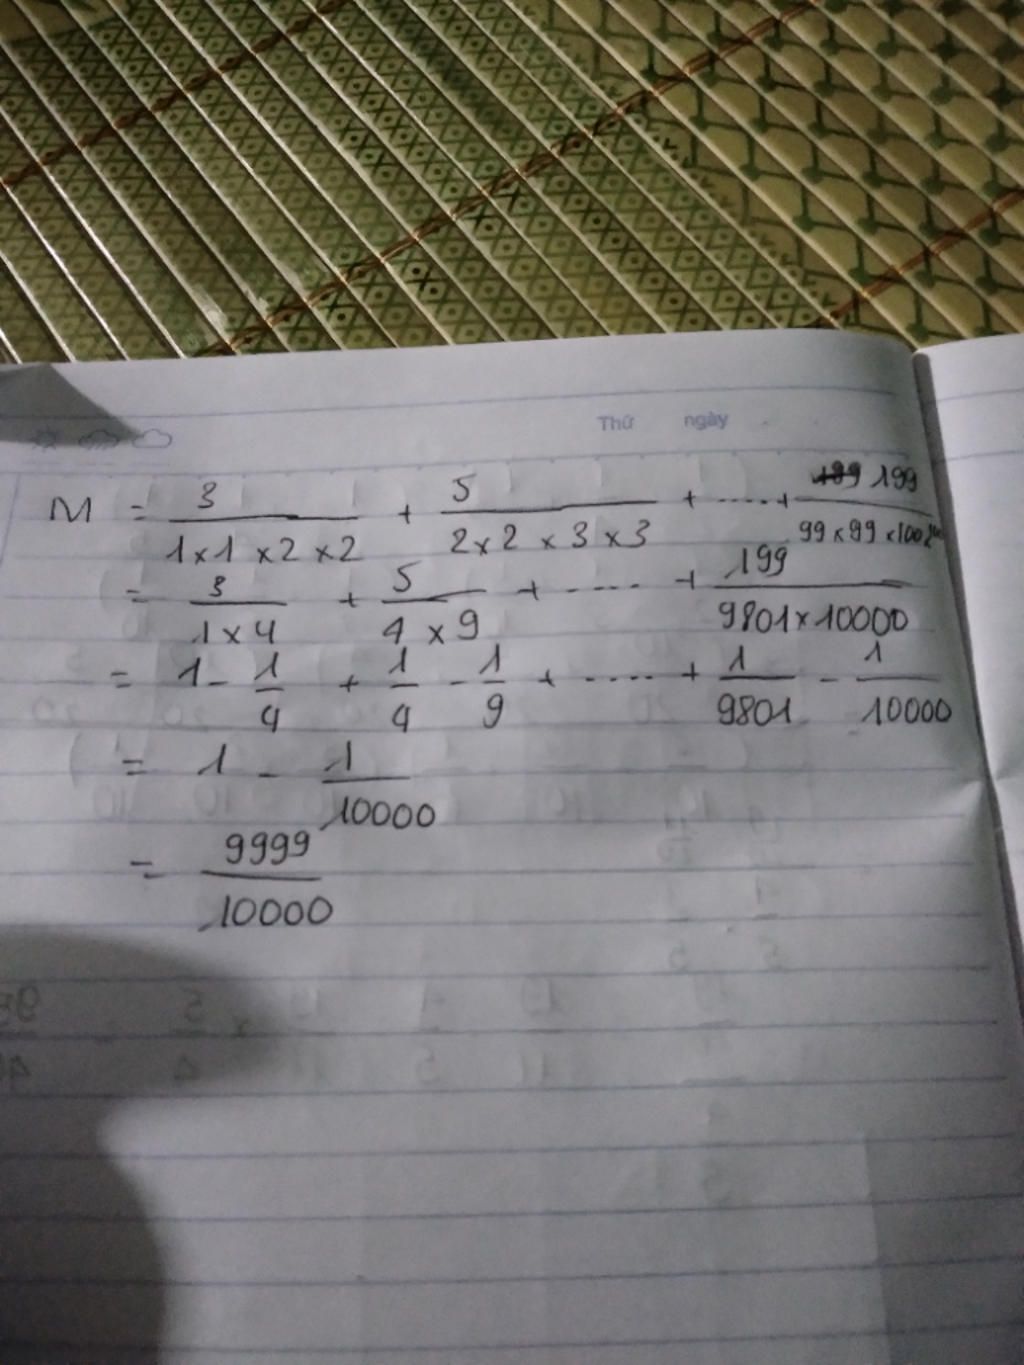 Thứ ngày
M = 3/(1x1x2x2) + 5/(2x2x3x3) + ..... + 199/(99x99x100x
= 3/(1x4) + 5/(4x9) + ..... + 199/(9801x10000)
= 1 - 1/4 + 1/4 - 1/9 + ..... + 1/9801 - 1/10000
= 1 - 1/10000
= 9999/10000